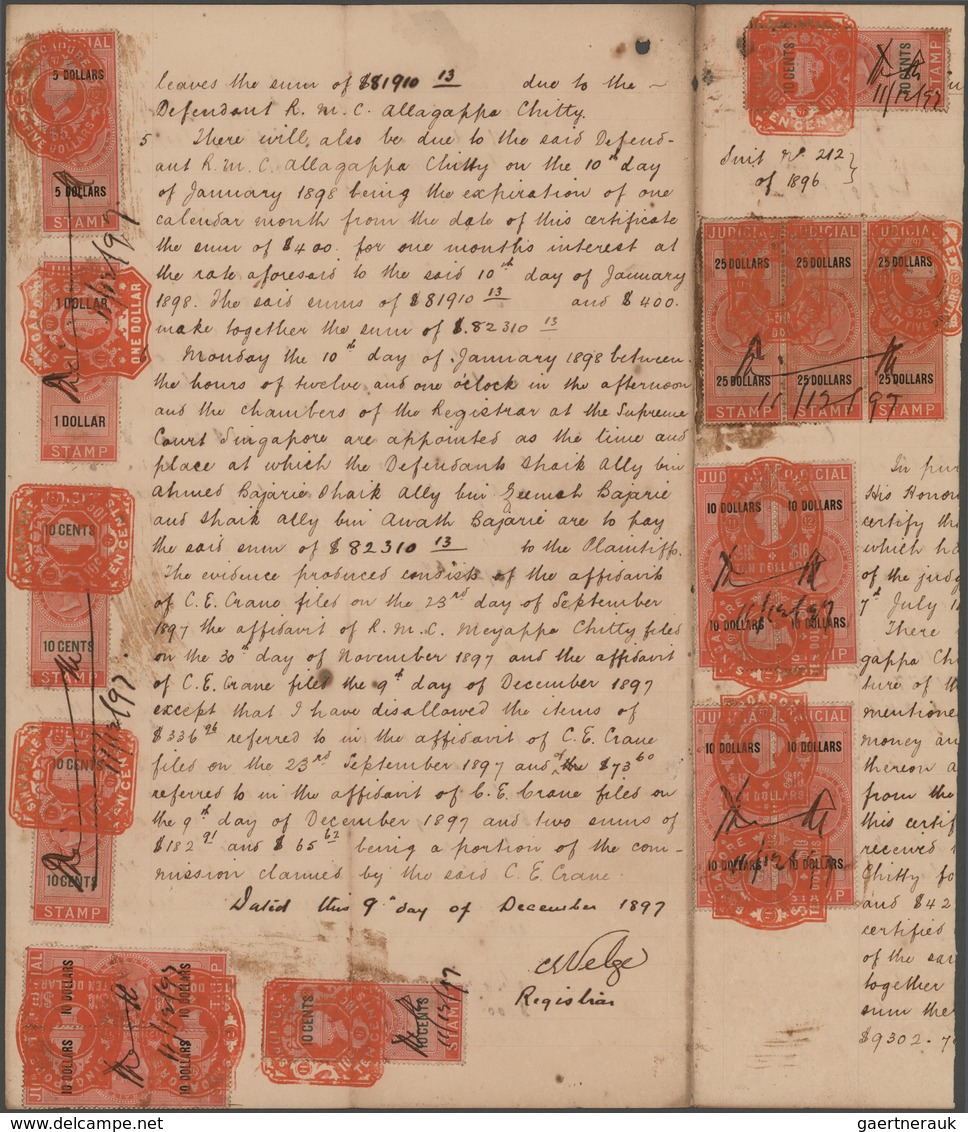 leaves the sum of $81910 13 due to the ~
Defendant R. M. C. Allagappa Chitty.
5 There will also be due to the said Defend-
ant R. M. C. Allagappa Chitty on the 10th day
of January 1898 being the expiration of one
calendar month from the date of this certificate
the sum of $400. for one months interest at
the rate aforesaid to the said 10th day of January
1898. The said sums of $81910 13 and $400.
make together the sum of $.82310 13
Monday the 10th day of January 1898 between
the hours of twelve and one o'clock in the afternoon
and the chambers of the Registrar at the Supreme
Court Singapore are appointed as the time and
place at which the Defendants Shaik Ally bin
Ahmed Bajarie Shaik Ally bin Bajarie
and Shaik Ally bin Awath Bajarie are to pay
the said sum of $82310 13 to the Plaintiffs.
The evidence produced consists of the affidavit
of C. E. Crane filed on the 23rd day of September
1897 the affidavit of R. M. C. Meyappa Chitty filed
on the 30th day of November 1897 and the affidavit
of C. E. Crane filed the 9th day of December 1897
except that I have disallowed the items of
$336 96 referred to in the affidavit of C. E. Crane
filed on the 23rd September 1897 and of the $73 60
referred to in the affidavit of C. E. Crane filed on
the 9th day of December 1897 and two sums of
$182 91 and $65 62 being a portion of the com-
mission claimed by the said C. E. Crane.
Dated this 9th day of December 1897
Registrar
JUDICIAL
5 DOLLARS
FIVE DOLLARS
5 DOLLARS
STAMP
11/12/97
1 DOLLAR
ONE DOLLAR
1 DOLLAR
STAMP
10 CENTS
TEN CENTS
10 CENTS
11/12/97
10 CENTS
TEN CENTS
10 CENTS
STAMP
JUDICIAL
10 DOLLARS
10 DOLLARS
10 DOLLARS
10 DOLLARS
11/12/97
STAMP
10 CENTS
TEN CENTS
10 CENTS
11/12/97
STAMP
10 CENTS
TEN CENTS
10 CENTS
STAMP
11/12/97
Suit No. 212
of 1896
JUDICIAL JUDICIAL JUDICIAL
25 DOLLARS 25 DOLLARS 25 DOLLARS
25 DOLLARS 25 DOLLARS 25 DOLLARS
11/12/97
STAMP STAMP STAMP
JUDICIAL JUDICIAL
10 DOLLARS 10 DOLLARS
TEN DOLLARS
11/12/97
10 DOLLARS 10 DOLLARS
JUDICIAL JUDICIAL
10 DOLLARS 10 DOLLARS
TEN DOLLARS
11/12/97
10 DOLLARS 10 DOLLARS
In pur
His Honor
certify tha
which ha
of the judg
7th July 1
There
gappa Ch
ture of th
mentione
money an
thereon a
from the
this certif
received
Chitty fo
and $42
certified
of the sai
together
sum the
$9302.7
www.delcampe.net
gaertnerauk